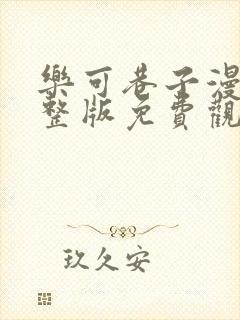 樂可巷子漫
整版免費觀
玖久安